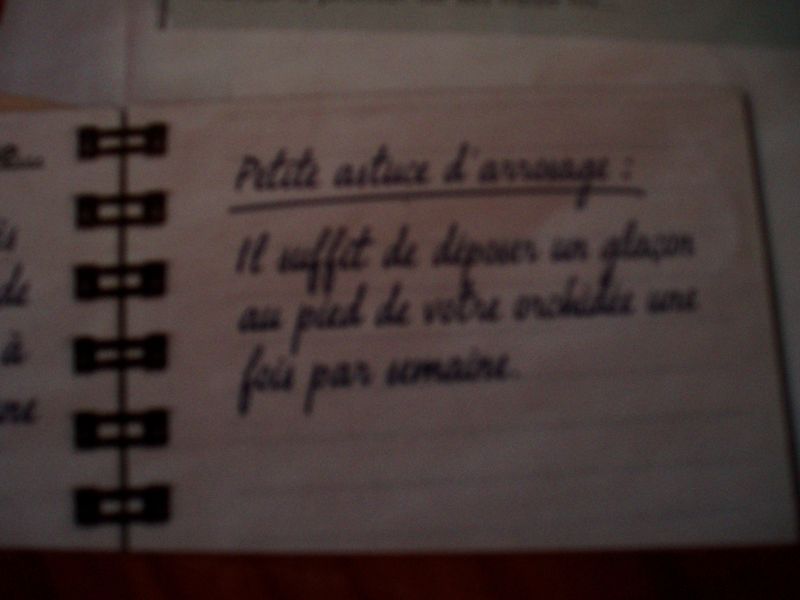 e...
is
de
à
une
Petite astuce d'arrosage :
Il suffit de déposer un glaçon
au pied de votre orchidée une
fois par semaine.